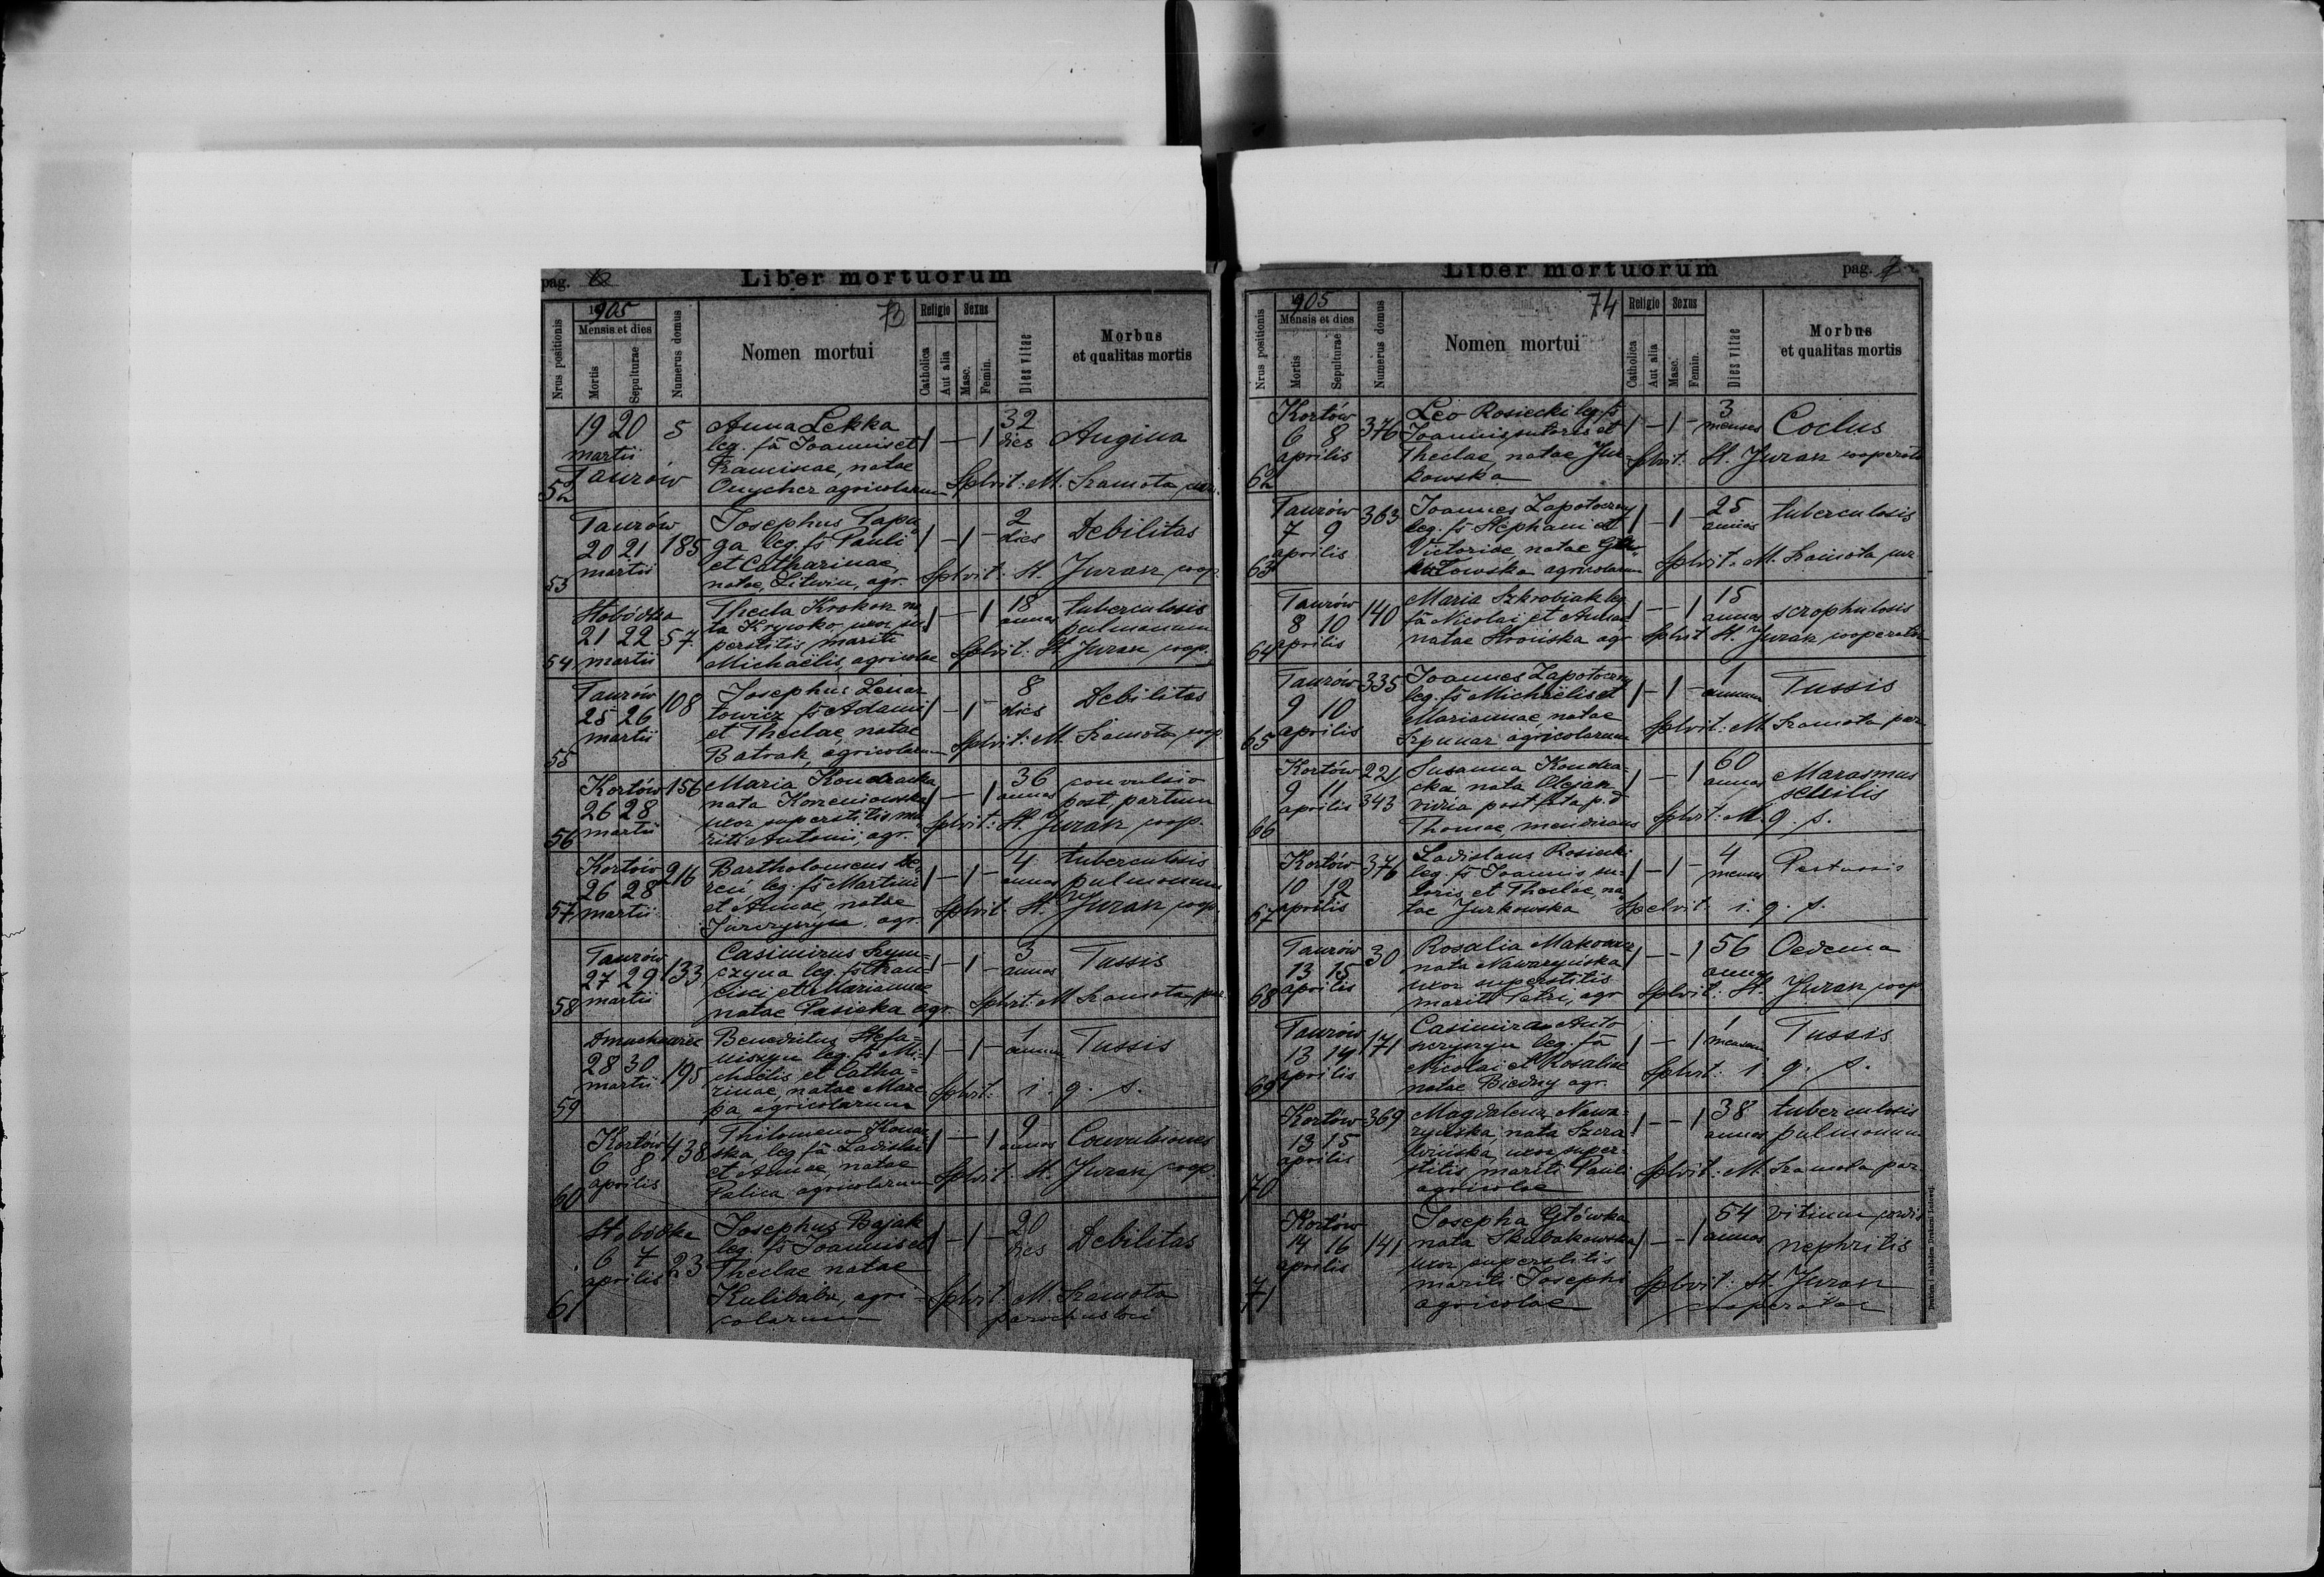 pag.
Liber mortuorum
73
1905
Nrus positionis
Mensis et dies
Mortis
Sepulturae
Numerus domus
Nomen mortui
Religio
Catholica
Aut alia
Sexus
Masc.
Femin.
Dies vitae
Morbus
et qualitas mortis
52
19 20
martii
Taurów
5
Anna Lekka
leg. fa Joannis et
Franciscae, natae
Onycher agricolarum
1 — 1
32
dies
Angina
Splvit: M. Sramota
53
Taurów
20 21
martii
185
Josephus Papu
ga leg. fs Pauli
et Catharinae,
natae Litwin, agr.
1 — 1 —
2
dies
Debilitas
Splvit: St. Juran coop.
54
Słobódka
21 22
martii
57
Thecla Krokon na
ta Krywko uxor su
perstitis mariti
Michaëlis, agricolae
1 — 1
18
annos
tuberculosis
pulmonum
Splvit: St. Juran coop.
55
Taurów
25 26
martii
108
Josephus Lenar
towicz fs Adami
et Theclae, natae
Batrak, agricolarum
1 — 1 —
8
dies
Debilitas
Splvit: M. Sramota
56
Kortów
26 28
martii
156
Maria Kondracka
nata Korzeniowska
uxor superstitis ma
riti Antonii, agr.
1 — 1
36
annos
convulsio
post partum
Splvit: St. Juran coop.
57
Kortów
26 28
martii
216
Bartholomeus
leg. fs Martini
et Annae, natae
agr.
1 — 1 —
4
annos
tuberculosis
pulmonum
Splvit: St. Juran coop.
58
Taurów
27 29
martii
133
Casimirus Szym=
czyna leg. fs Fran=
cisci et Mariannae
natae Pasieka agr.
1 — 1 —
3
annos
Tussis
Splvit: M. Sramota par.
59
28 30
martii
195
Benedictus Stefa=
niszyn leg. fs Mi=
chaëlis et Catha=
rinae, natae Maze
pa, agricolarum
1 — 1 —
1
annum
Tussis
Splvit: i. q. s.
60
Kortów
6 8
aprilis
438
Philomena Konar
ska, leg. fa Ladislai
et Annae, natae
Palica, agricolarum
1 — 1
9
annos
Convulsiones
Splvit: St. Juran coop.
61
Słobódka
6 7
aprilis
23
Josephus Bajak
leg. fs Joannis et
Theclae natae
Kulibaba, agri=
colarum
1 — 1 —
20
dies
Debilitas
Splvit: M. Sramota
parochus loci
Liber mortuorum
pag.
74
1905
Nrus positionis
Mensis et dies
Mortis
Sepulturae
Numerus domus
Nomen mortui
Religio
Catholica
Aut alia
Sexus
Masc.
Femin.
Dies vitae
Morbus
et qualitas mortis
62
Kortów
6 8
aprilis
376
Leo Rosiecki leg. fs
Joannis sutoris et
Theclae, natae Jur=
kowska
1 — 1 —
3
menses
Coclus
Splvit: St. Juran cooperator
63
Taurów
7 9
aprilis
363
Joannes Zapotoczny
leg. fs Stephani et
Victoriae natae
agricolarum
1 — 1 —
25
annos
tuberculosis
Splvit: M. Sramota par
64
Taurów
8 10
aprilis
140
Maria Szkrobiak leg.
fa Nicolai et Annae
natae Strońska agr
1 — 1
15
annos
scrophulosis
Splvit St. Juran, cooperator
65
Taurów
9 10
aprilis
335
Joannes Zapotoczny
leg. fs Michaëlis et
Mariannae, natae
Szpunar agricolarum
1 — 1 —
1
annum
Tussis
Splvit: M. Sramota par
66
Kortów
9 11
aprilis
221
343
Susanna Kondra=
cka nata Olejar
vidua post fata p. d
Thomae, mendicans
1 — 1
60
annos
Marasmus
senilis
Splvit: M. q. s.
67
Kortów
10 12
aprilis
376
Ladislaus Rosiecki
leg. fs Joannis su=
toris et Theclae, na
tae Jurkowska
1 — 1 —
4
menses
Pertussis
Spelvit: i. q. s.
68
Taurów
13 15
aprilis
30
Rosalia Makowicz
nata Nawaryńska
uxor superstitis
mariti Petri, agr
1 — — 1
56
annos
Oedema
Splvit: St. Juran coop
69
Taurów
13 14
aprilis
171
Casimira Anto
szczyszyn leg. fa
Nicolai et Rosaliae
natae Biedny agr.
1 — 1
1
mensem
Tussis
Splvit: i. q. s.
70
Kortów
13 15
aprilis
369
Magdalena Nawa=
ryńska, nata Szcza
wińska, uxor super=
stitis mariti Pauli
agricolae
1 — — 1
38
annos
tuberculosis
pulmonum
Splvit: M. Sramota par
71
Kortów
14 16
aprilis
141
Josepha Główka
nata Skubakowska
uxor superstitis
mariti Josephi
agricolae
1 — — 1
54
annos
vitium cordis
nephritis
Splvit: St. Juran
cooperator